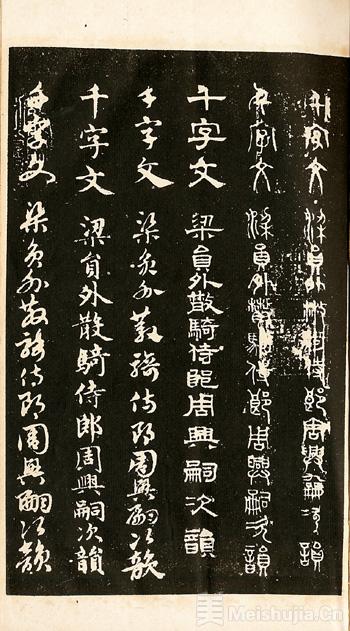 千字文 梁員外散騎侍郎周興嗣次韻
千字文 梁員外散騎侍郎周興嗣次韻
千字文 梁員外散騎侍郎周興嗣次韻
千字文 梁員外散騎侍郎周興嗣次韻
千字文 梁員外散騎侍郎周興嗣次韻
千字文 梁員外散騎侍郎周興嗣次韻
美 Meishujia.Cn